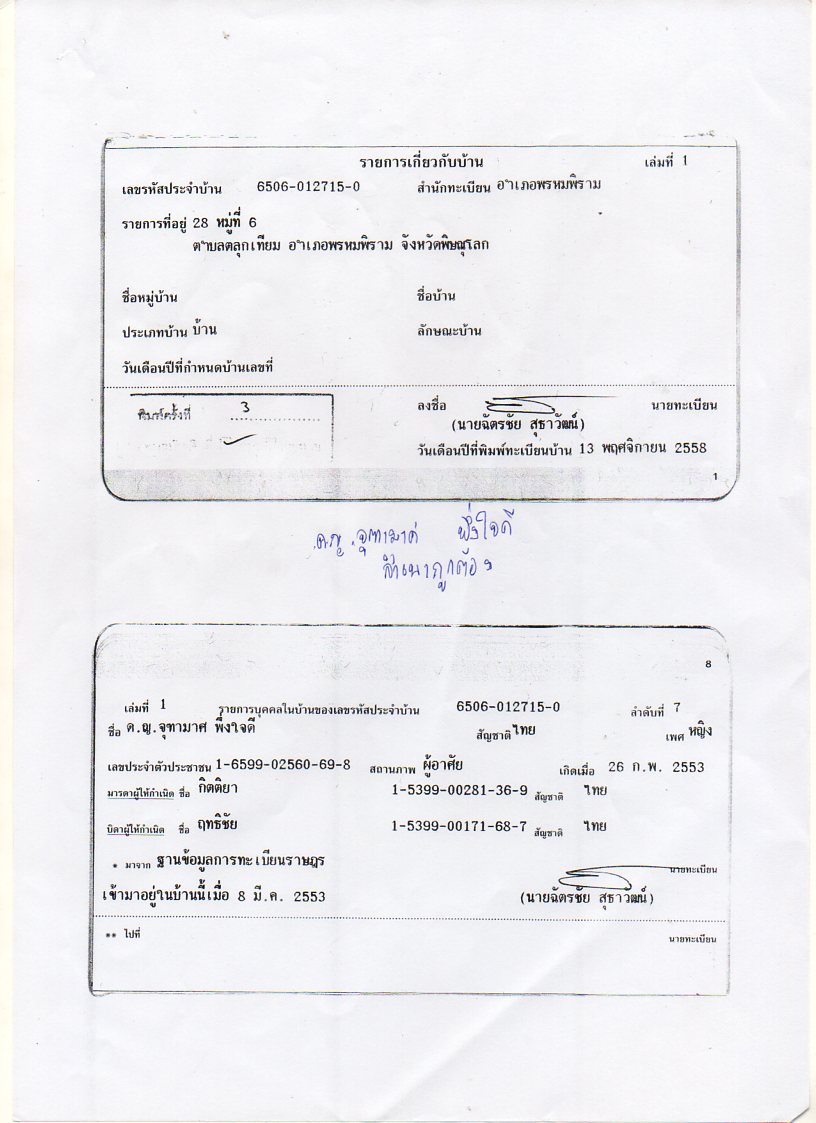 รายการเกี่ยวกับบ้าน เล่มที่ 1
เลขรหัสประจำบ้าน 6506-012715-0 สำนักทะเบียน อำเภอพรหมพิราม
รายการที่อยู่ 28 หมู่ที่ 6
ตำบลตลุกเทียม อำเภอพรหมพิราม จังหวัดพิษณุโลก
ชื่อหมู่บ้าน ชื่อบ้าน
ประเภทบ้าน บ้าน ลักษณะบ้าน
วันเดือนปีที่กำหนดบ้านเลขที่
พิมพ์ครั้งที่ 3 ลงชื่อ นายทะเบียน
(นายฉัตรชัย สุธาวัฒน์)
วันเดือนปีที่พิมพ์ทะเบียนบ้าน 13 พฤศจิกายน 2558
1
ด.ญ.จุฑามาศ พึ่งใจดี
สำเนาถูกต้อง
8
เล่มที่ 1 รายการบุคคลในบ้านของเลขรหัสประจำบ้าน 6506-012715-0 ลำดับที่ 7
ชื่อ ด.ญ.จุฑามาศ พึ่งใจดี สัญชาติ ไทย เพศ หญิง
เลขประจำตัวประชาชน 1-6599-02560-69-8 สถานภาพ ผู้อาศัย เกิดเมื่อ 26 ก.พ. 2553
มารดาผู้ให้กำเนิด ชื่อ กิตติยา 1-5399-00281-36-9 สัญชาติ ไทย
บิดาผู้ให้กำเนิด ชื่อ ฤทธิชัย 1-5399-00171-68-7 สัญชาติ ไทย
* มาจาก ฐานข้อมูลการทะเบียนราษฎร นายทะเบียน
เข้ามาอยู่ในบ้านนี้เมื่อ 8 มี.ค. 2553 (นายฉัตรชัย สุธาวัฒน์)
** ไปที่ นายทะเบียน